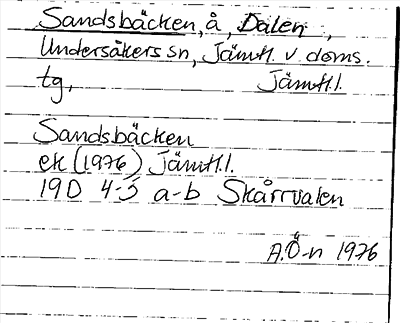 Sandsbäcken, å, Dalen,
Undersåkers sn, Jämtl. v. doms.
tg, Jämtl.l.
Sandsbäcken
ek (1976) Jämtl.l.
19D 4-5 a-b Skårrvalen
A.Ö-n 1976